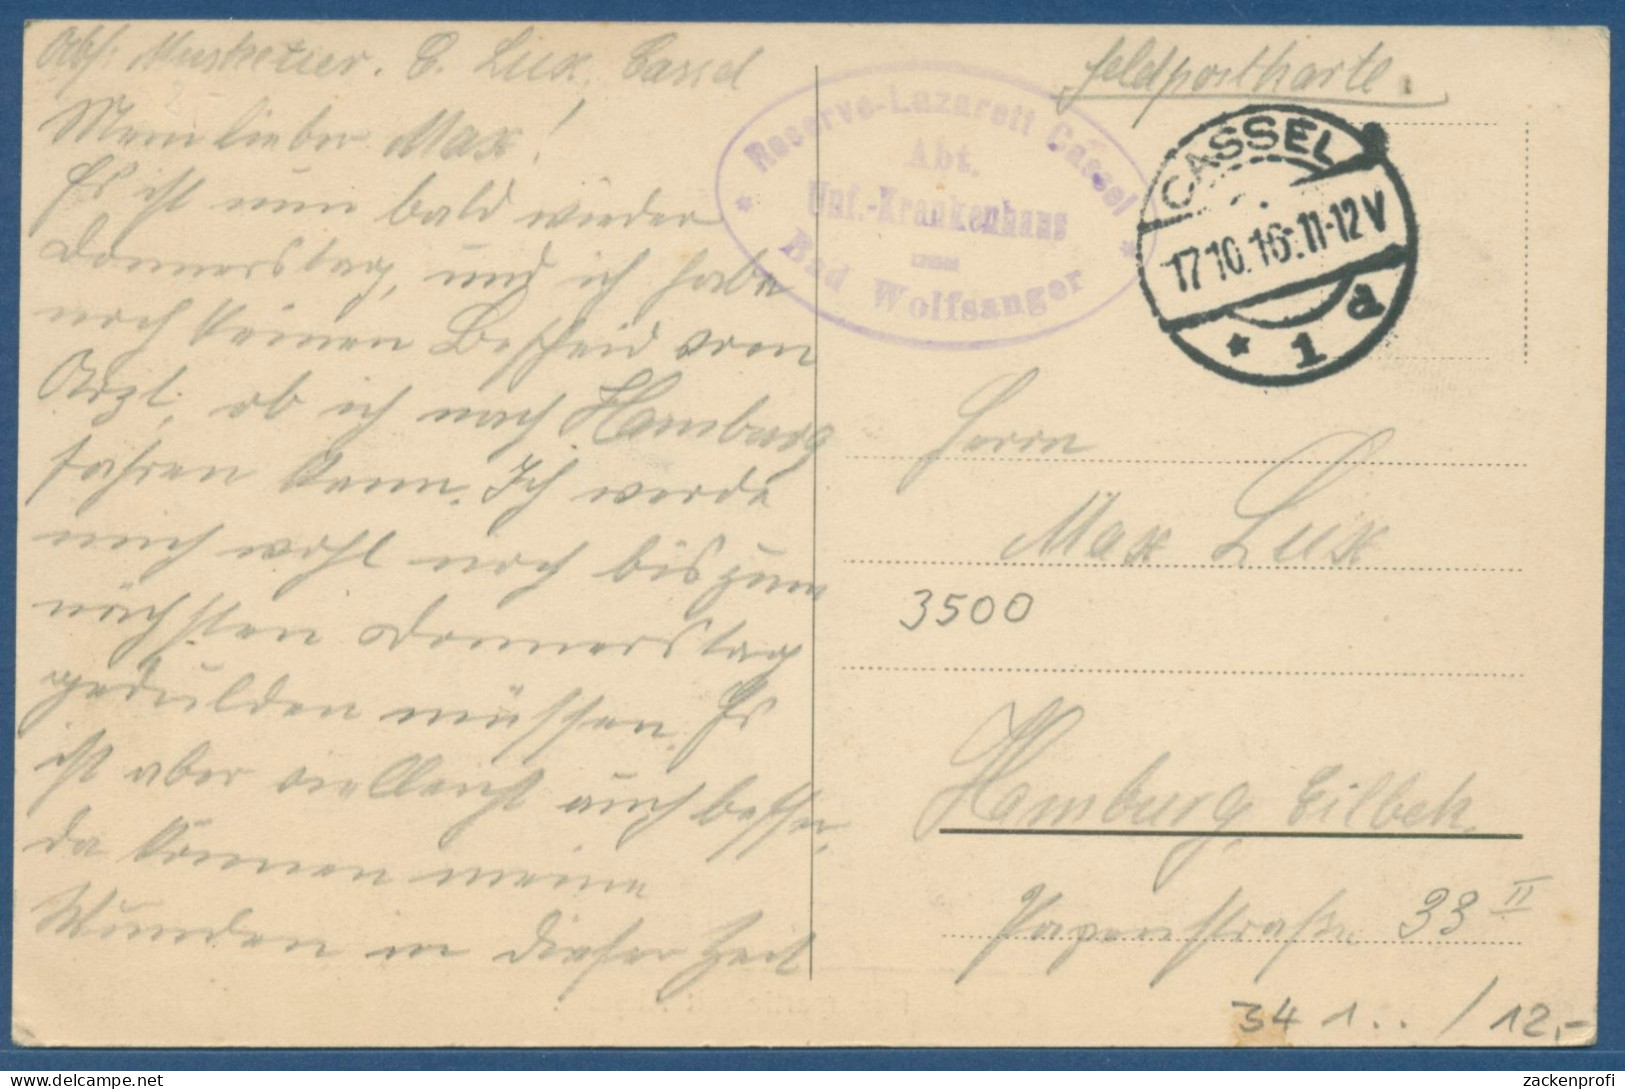 Abs: Musketier. C. Lux, Cassel
Mein lieber Max!
Es ist nun bald wieder
Donnerstag, und ich habe
noch keinen Bescheid vom
Arzt, ob ich nach Hamburg
fahren kann. Ich werde
mich wohl noch bis zum
nächsten Donnerstag
gedulden müssen. Es
ist aber vielleicht auch besser,
da können meine
Wunden in dieser Zeit
Reserve-Lazarett Cassel
Abt.
Unf.-Krankenhaus
Bad Wolfsanger
Feldpostkarte.
CASSEL
17.10.16.11-12V
* 1 d
Herrn
Max Lux
3500
Hamburg, Eilbek
Papenstraße 33 II
34 1.. / 12,-
zackenprofi